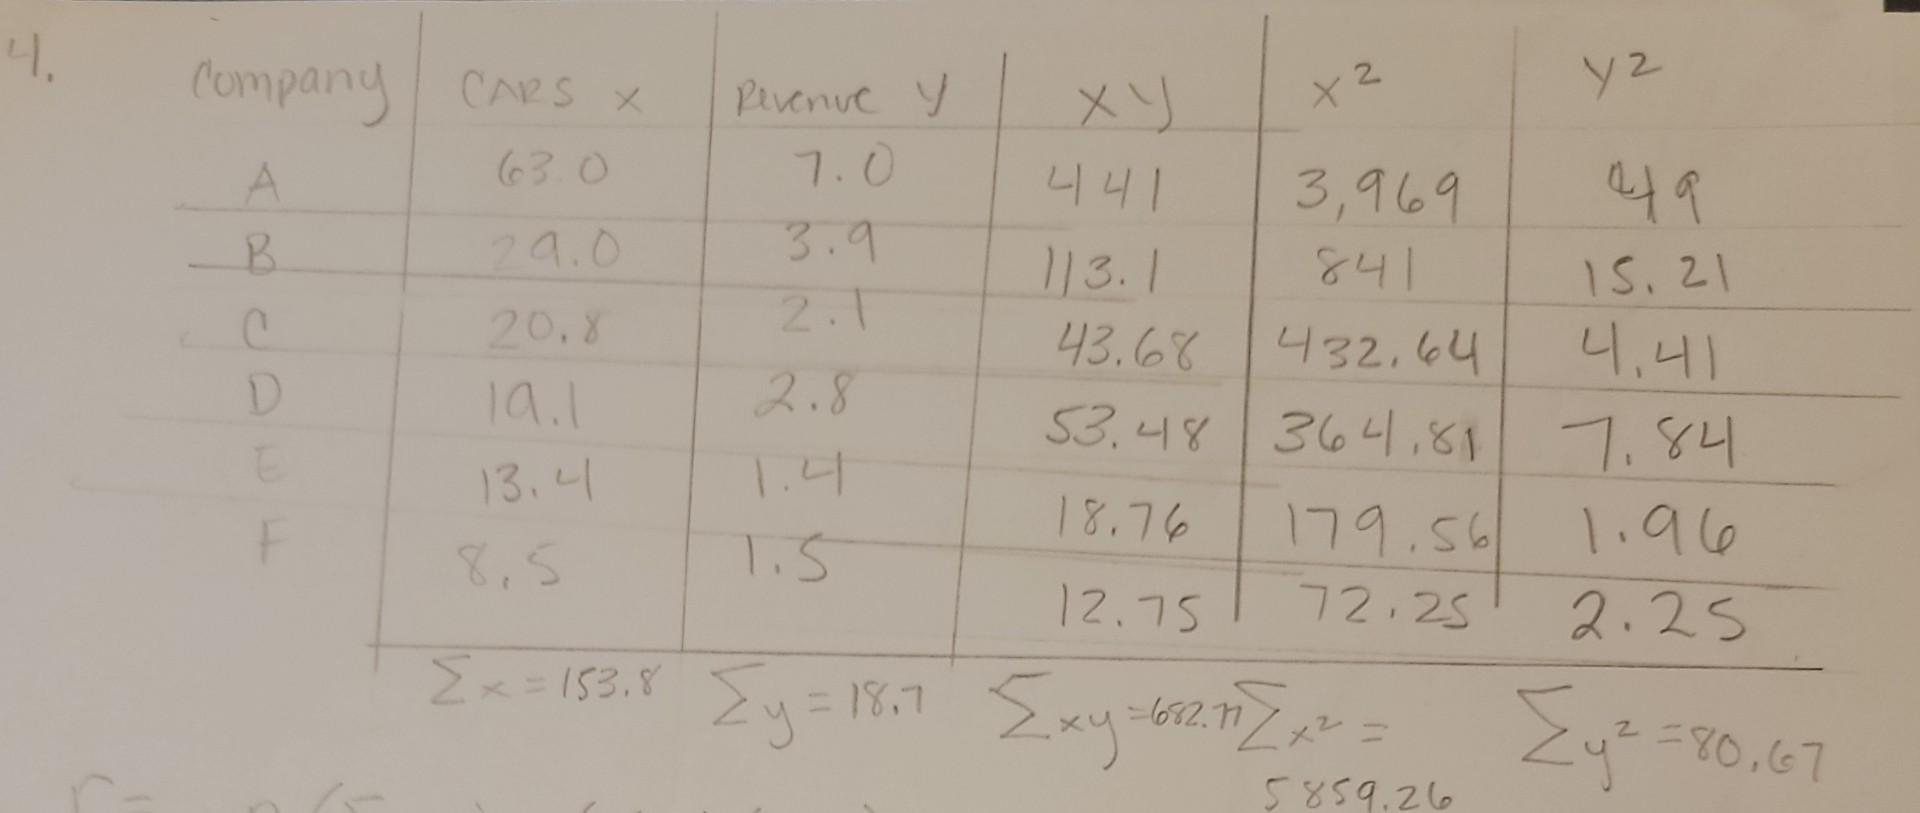 4.
Company CARS x Revenue y xy x² y²
A 63.0 7.0 441 3,969 49
B 29.0 3.9 113.1 841 15.21
C 20.8 2.1 43.68 432.64 4.41
D 19.1 2.8 53.48 364.81 7.84
E 13.4 1.4 18.76 179.56 1.96
F 8.5 1.5 12.75 72.25 2.25
Σx = 153.8 Σy = 18.7 Σxy = 682.77 Σx² = 5859.26 Σy² = 80.67